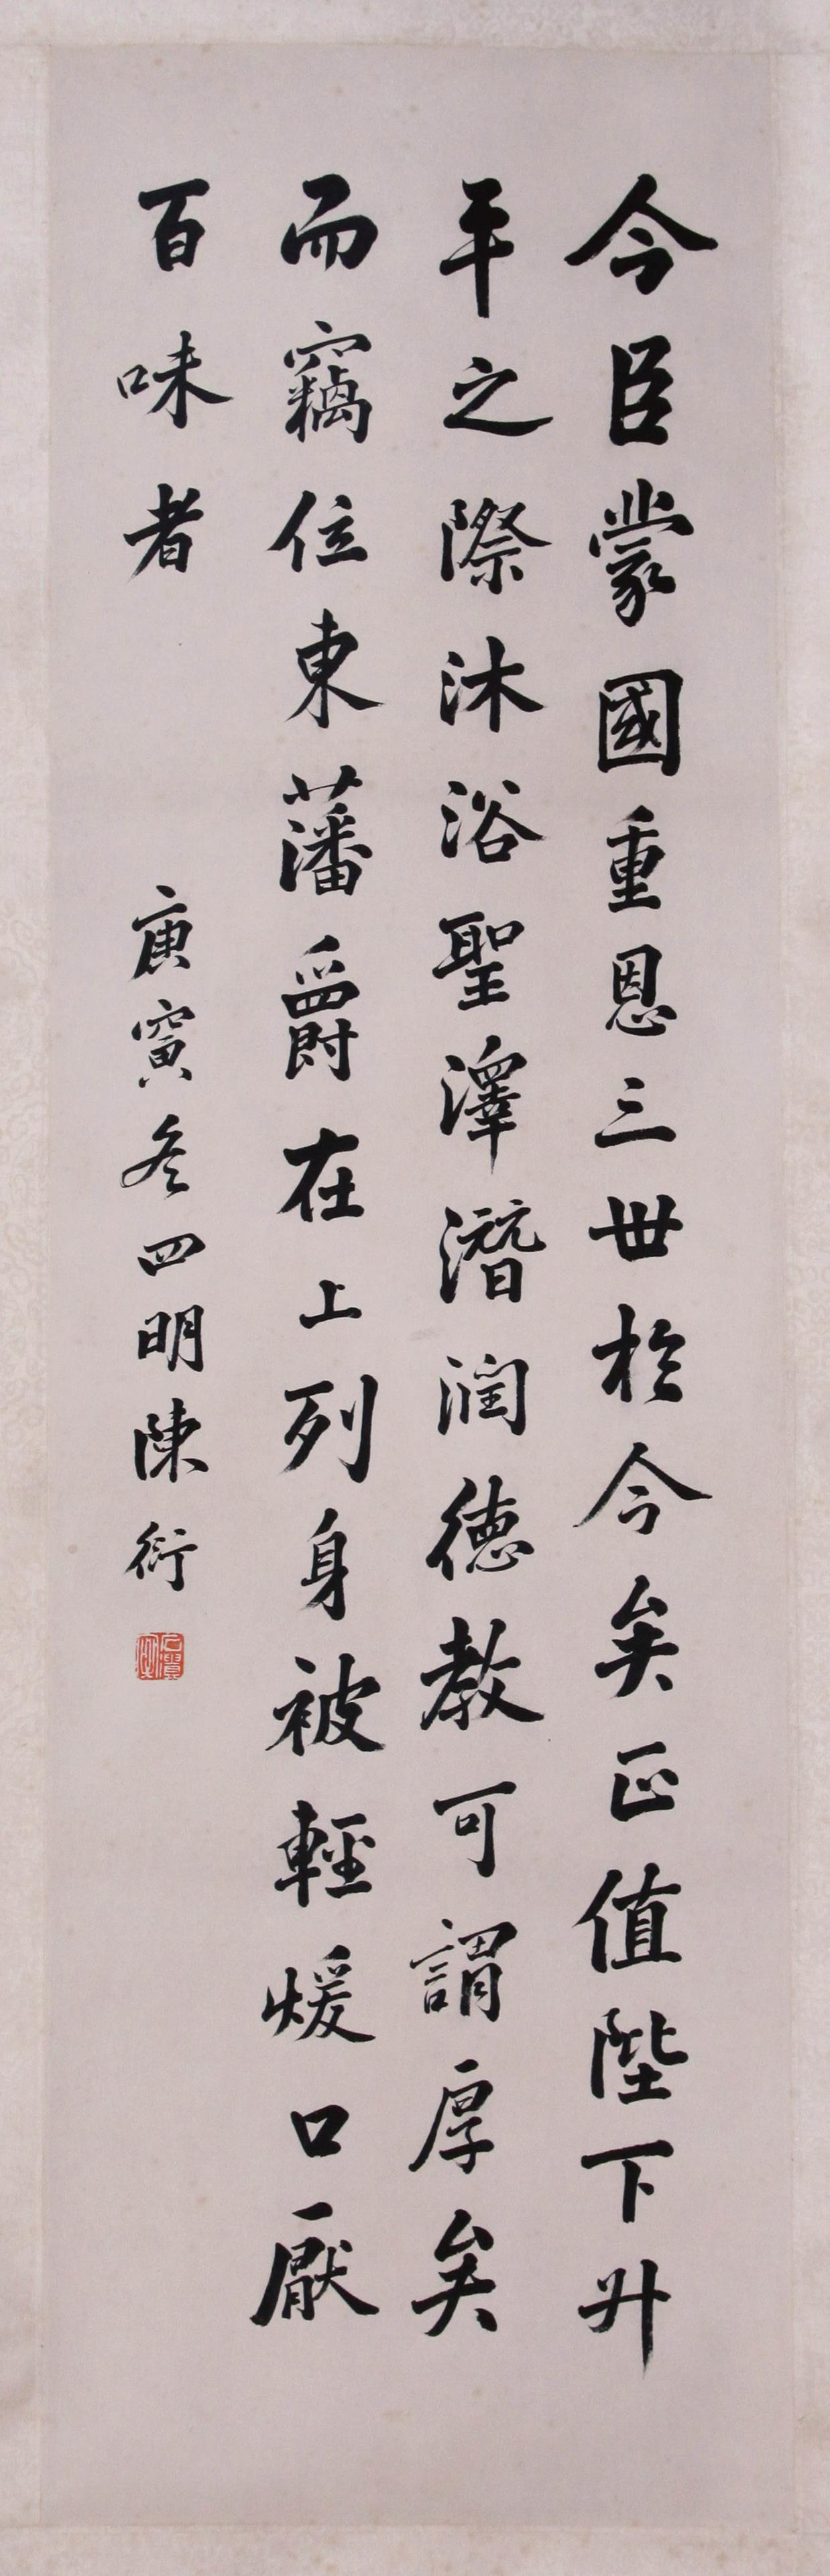 今臣蒙國重恩三世於今矣正值陛下升
平之際沐浴聖澤潛潤德教可謂厚矣
而竊位東藩爵在上列身被輕煖口厭
百味者
庚寅冬四明陳衍